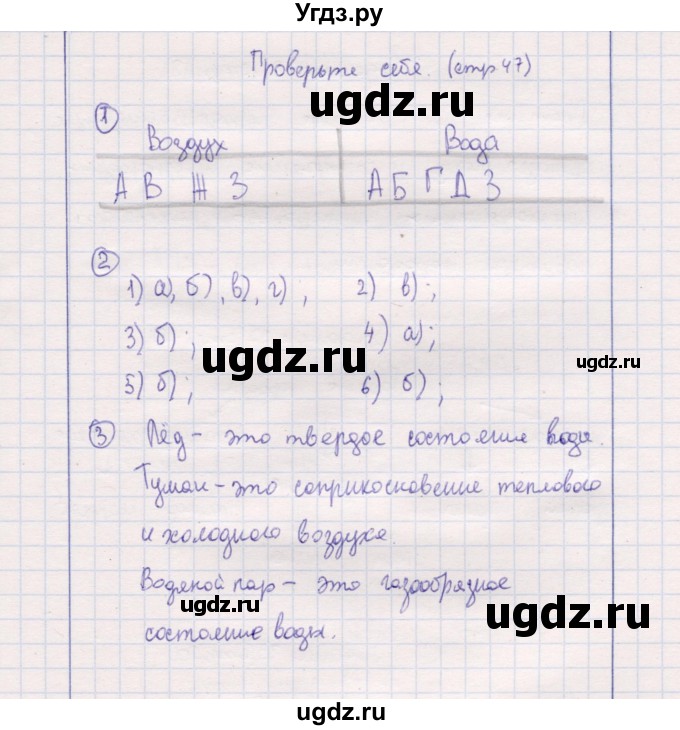 Угдз.ру
Проверьте себя. (стр 47)
ugdz.ru
1
Воздух Вода
А В Ж З А Б Г Д З
2
1) а), б), в), г); 2) в);
3) б); 4) а);
ugdz.ru
ugdz.ru
5) б); 6) б);
3 Лёд - это твердое состояния воды.
ugdz.ru
Туман - это соприкосновение теплового
и холодного воздуха.
ugdz.ru
Водяной пар - это газообразное
ugdz.ru
ugdz.ru
состояние воды.
ugdz.ru